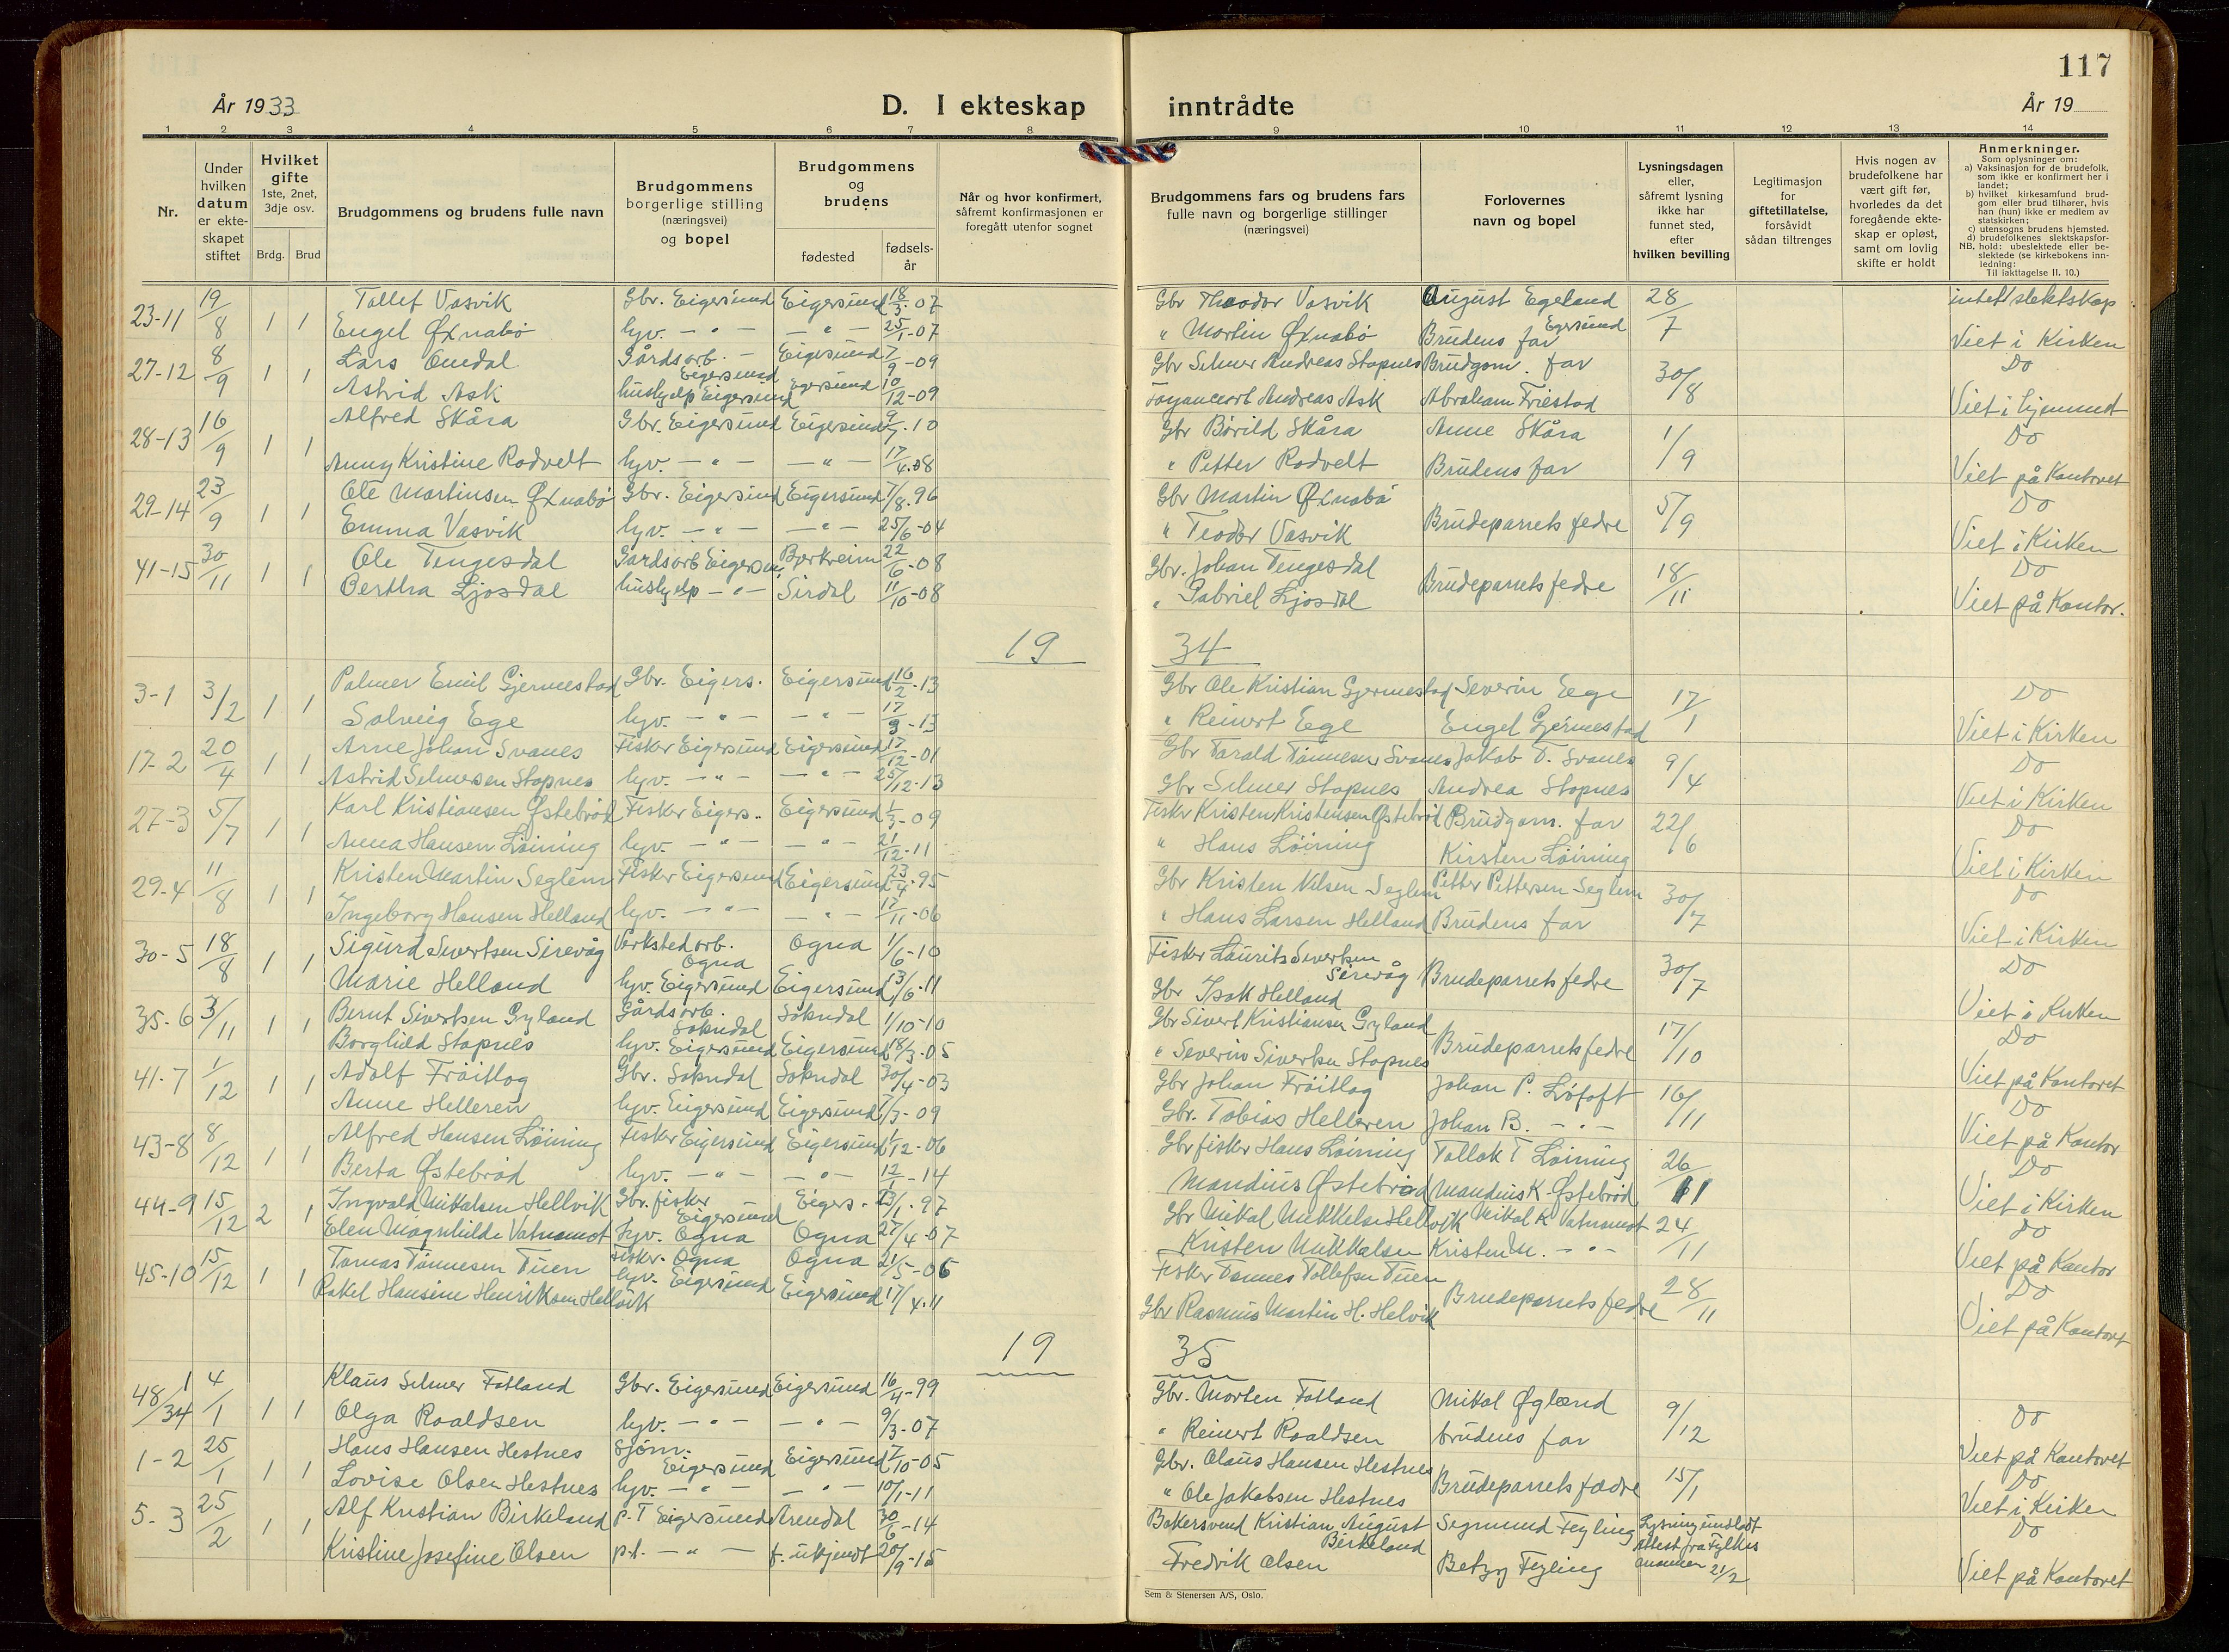 117
År 1933 D. I ekteskap inntrådte År 19
1 2 3 4 5 6 7 8 9 10 11 12 13 14
Nr.
Under hvilken datum er ekteskapet stiftet
Hvilket gifte 1ste, 2net, 3dje osv. Brdg. Brud
Brudgommens og brudens fulle navn
Brudgommens borgerlige stilling (næringsvei) og bopel
Brudgommens og brudens fødested fødselsår
Når og hvor konfirmert, såfremt konfirmasjonen er foregått utenfor sognet
Brudgommens fars og brudens fars fulle navn og borgerlige stillinger (næringsvei)
Forlovernes navn og bopel
Lysningsdagen eller, såfremt lysning ikke har funnet sted, efter hvilken bevilling
Legitimasjon for giftetillatelse, forsåvidt sådan tiltrenges
Hvis nogen av brudefolkene har vært gift før, hvorledes da det foregående ekteskap er opløst, samt om lovlig skifte er holdt
Anmerkninger.
Som oplysninger om:
a) Vaksinasjon for de brudefolk, som ikke er konfirmert her i landet;
b) hvilket kirkesamfund brudgom eller brud tilhører, hvis han (hun) ikke er medlem av statskirken;
c) utensogns brudens hjemsted.
d) brudefolkenes slektskapsforhold: ubeslektede eller beslektede (se kirkebokens innledning:
NB. Til iakttagelse II. 10.)
23-11 19/8 1 1 Tollef Vasvik Gbr. Eigersund Eigersund 18/3-07 Gbr Theodor Vasvik August Egeland Egersund 28/7 intet slektskap
Engel Øxnabø hjv. - " - - " - 25/1-07 " Martin Øxnabø Brudens far Viet i Kirken
27-12 8/9 1 1 Lars Omdal Gårdsarb. Eigersund Eigersund 7/9-09 Gbr Selmer Andreas Stapnes Brudgom. far 30/8 Do
Astrid Ask hushjelp Eigersund Egersund 10/12-09 Andreas Ask Abraham Friestad Viet i
28-13 16/9 1 1 Alfred Skåra Gbr. Eigersund Eigersund 9/7-10 Gbr Bårild Skåra Anne Skåra 1/9 Do
Anny Kristine Rodvelt hjv. - " - - " - 17/4-08 " Petter Rodvelt Brudens far Viet på Kontoret
29-14 23/9 1 1 Ole Martinsen Øxnabø Gbr. Eigersund Eigersund 7/8-96 Gbr Martin Øxnabø Brudeparrets fedre 5/9 Do
Emma Vasvik hjv. - " - - " - 25/6-04 " Teodor Vasvik Viet i Kirken
41-15 30/11 1 1 Ole Tengesdal Gårdsarb Eigersun. Bjerkreim 22/6-08 Gbr. Johan Tengesdal Brudeparrets fedre 18/11 Do
Bertha Ljosdal hushjelp - " - Sirdal 11/10-08 " Gabriel Ljosdal Viet på Kontor.
19 34
3-1 3/2 1 1 Palmer Emil Gjermestad Gbr. Eigers. Eigersund 16/2-13 Gbr Ole Kristian Gjermestad Severin Ege 17/1 Do
Solveig Ege hjv. - " - - " - 17/9-13 " Reinert Ege Engel Gjermestad Viet i Kirken
17-2 20/4 1 1 Arne Johan Svanes Fisker Eigersund Eigersund 17/12-01 Gbr Tarald Tønnesen Svanes Jakob T. Svanes 9/4 Do
Astrid Selmersen Stapnes hjv. - " - - " - 25/12-13 Gbr Selmer Stapnes Andrea Stapnes Viet i Kirken
27-3 5/7 1 1 Karl Kristiansen Østebrød Fisker Eigers. Eigersund 1/3-09 Fisker Kristen Kristensen Østebrød Brudgom. far 22/6 Do
Anna Hansen Løining hjv. - " - - " - 21/12-11 " Hans Løining Kirsten Løining Viet i Kirken
29-4 11/8 1 1 Kristen Martin Seglem Fisker Eigersund Eigersund 23/4-95 Gbr Kristen Nilsen Seglem Petter Pettersen Seglem 30/7 Do
Ingeborg Hansen Helland hjv. - " - - " - 17/11-06 " Hans Larsen Helland Brudens far Viet i Kirken
30-5 18/8 1 1 Sigurd Sivertsen Sirevåg Verkstedarb. Ogna Ogna 1/6-10 Fisker Laurits Sivertsen Sirevåg Brudeparrets fedre 30/7 Do
Marie Helland hjv. Eigersund Eigersund 13/6-11 Gbr Isak Helland Viet i Kirken
35-6 3/11 1 1 Bernt Sivertsen Gyland Gårdsarb. Sokndal Sokndal 1/10-10 Gbr Sivert Kristiansen Gyland Brudeparrets fedre 17/10 Do
Borghild Stapnes hjv. Eigersund Eigersund 18/3-05 " Severin Sivertsen Stapnes Viet på Kontoret
41-7 1/12 1 1 Adolf Frøitlog Gbr. Sokndal Sokndal 30/4-03 Gbr Johan Frøitlog Johan P. Løfoft 16/11 Do
Anne Helleren hjv. Eigersund Eigersund /3-09 Gbr. Tobias Helleren Johan B. - " - Viet på Kontor
43-8 8/12 1 1 Alfred Hansen Løining Fisker Eigersund Eigersund 1/12-06 Gbr fisker Hans Løining Tollak T Løining 26/11 Do
Berta Østebrød hjv. - " - - " - 12/1-14 Mandius Østebrød Mandius K. Østebrød Viet i Kirken
44-9 15/12 2 1 Ingvald Mikalsen Hellvik Gbr. fisker Eigersund Eigers. 23/1-97 Gbr Mikal Mikkelsen Hellvik Mikal K Vatnamot 24/11 Do
Elen Magnhilde Vatnamot hjv. Ogna Ogna 27/4-07 Kristen Mikkalsen Kristen M. - " - Viet på Kontor
45-10 15/12 1 1 Tomas Tønnesen Tuen Fisker. Ogna Ogna 21/5-06 Fisker Tønnes Tollefsen Tuen Brudeparrets fedre 28/11 Do
Rakel Hansine Henriksen Hellvik hjv. Eigersund Eigersund 17/4-11 Gbr Rasmus Martin H. Helvik Viet på Kontoret
19 35
48/34 1 4/1 1 1 Klaus Selmer Fotland Gbr. Eigersund Eigersund 16/4-99 Gbr. Morten Fotland Mikal Øgland 9/12 Do
Olga Roaldsen hjv. - " - - " - 9/3-07 " Reinert Roaldsen brudens far Viet på Kontoret
1-2 25/1 1 1 Hans Hansen Hestnes Sjøm. Eigersund Eigersund 17/10-05 Gbr. Olaus Hansen Hestnes Brudeparrets fædre 15/1 Do
Lovise Olsen Hestnes hjv. - " - - " - 10/1-11 " Ole Jakobsen Hestnes Viet i Kirken
5-3 25/2 1 1 Alf Kristian Birkeland p.T Eigersund Arendal 30/6-14 Bakersvend Kristian August Birkeland Segmund Feyling Lysning undlatt Attest fra Fylkesmannen 21/2 Do
Kristine Josefine Olsen p.t. - " - f. ukjendt 20/9-15 Fredrik Olsen Betzy Feyling Viet på Kontoret
Sem & Stenersen A/S, Oslo.